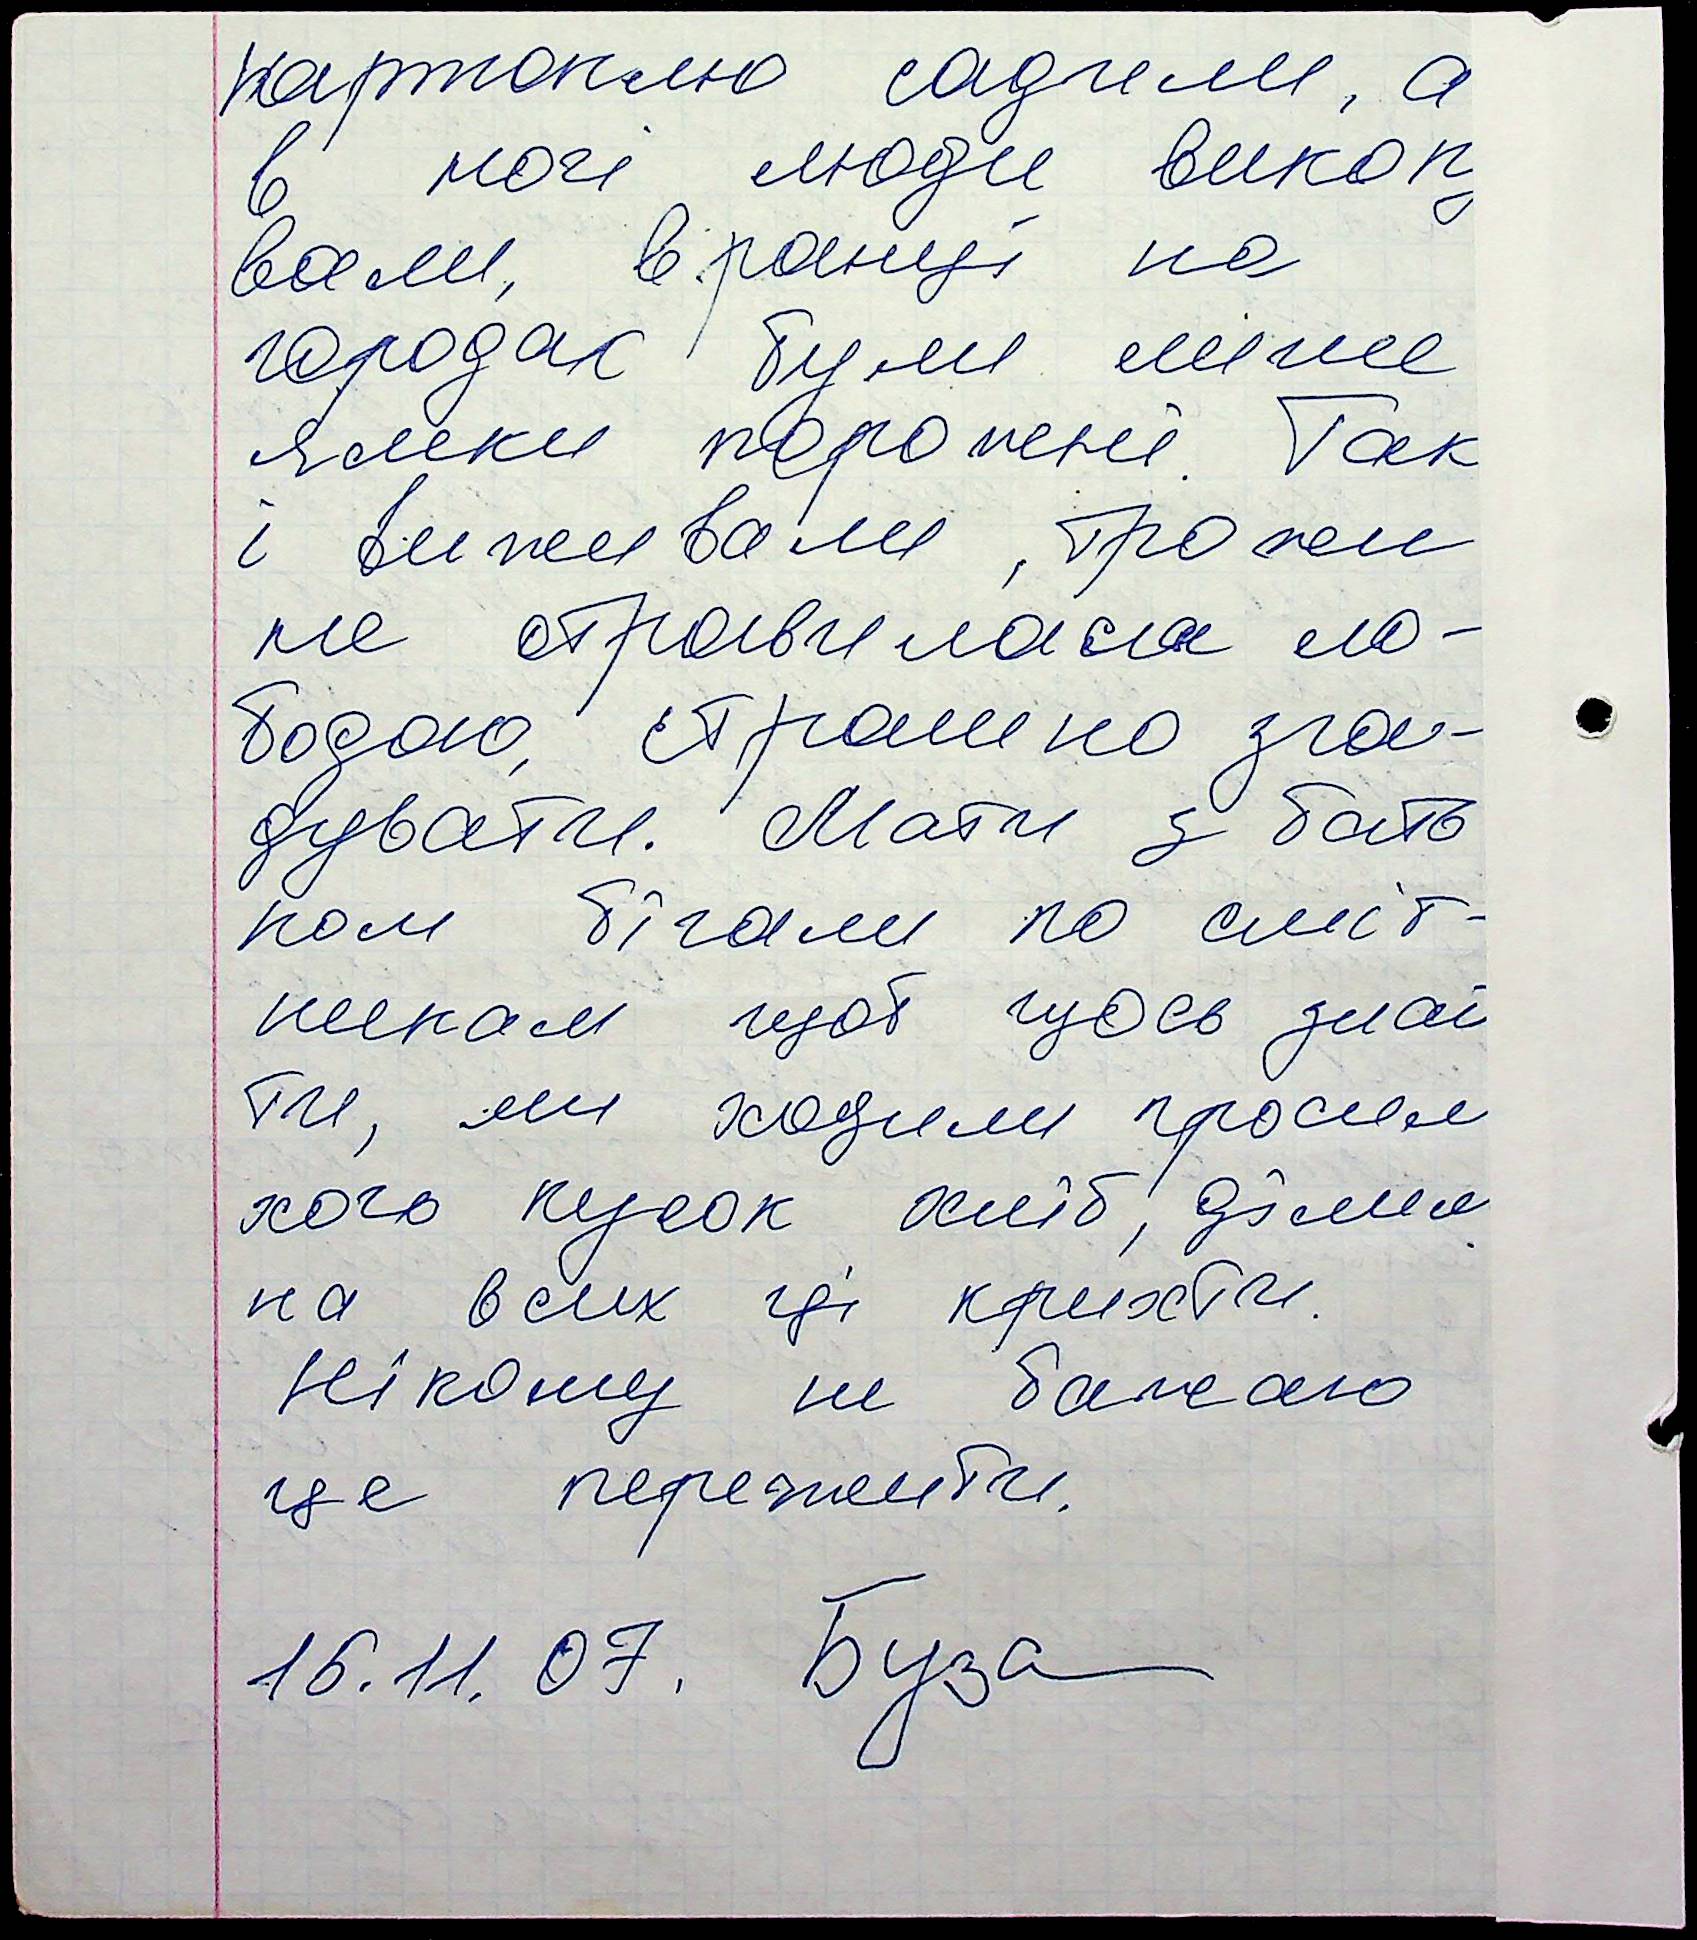 картоплю садили, а
в ночі люди викопу
вали, вранці на
городах були лише
ямки порожні. Так
і виживали, трохи
не отравилася ло-
бодою, страшно зга-
дувати. Мати з бать
ком бігали по сміт-
никам щоб щось знай
ти, ми ходили просили
хого кусок хліб, ділили
на всих ці крихти.
Нікому не бажаю
це пережити.
16.11.07. Буза